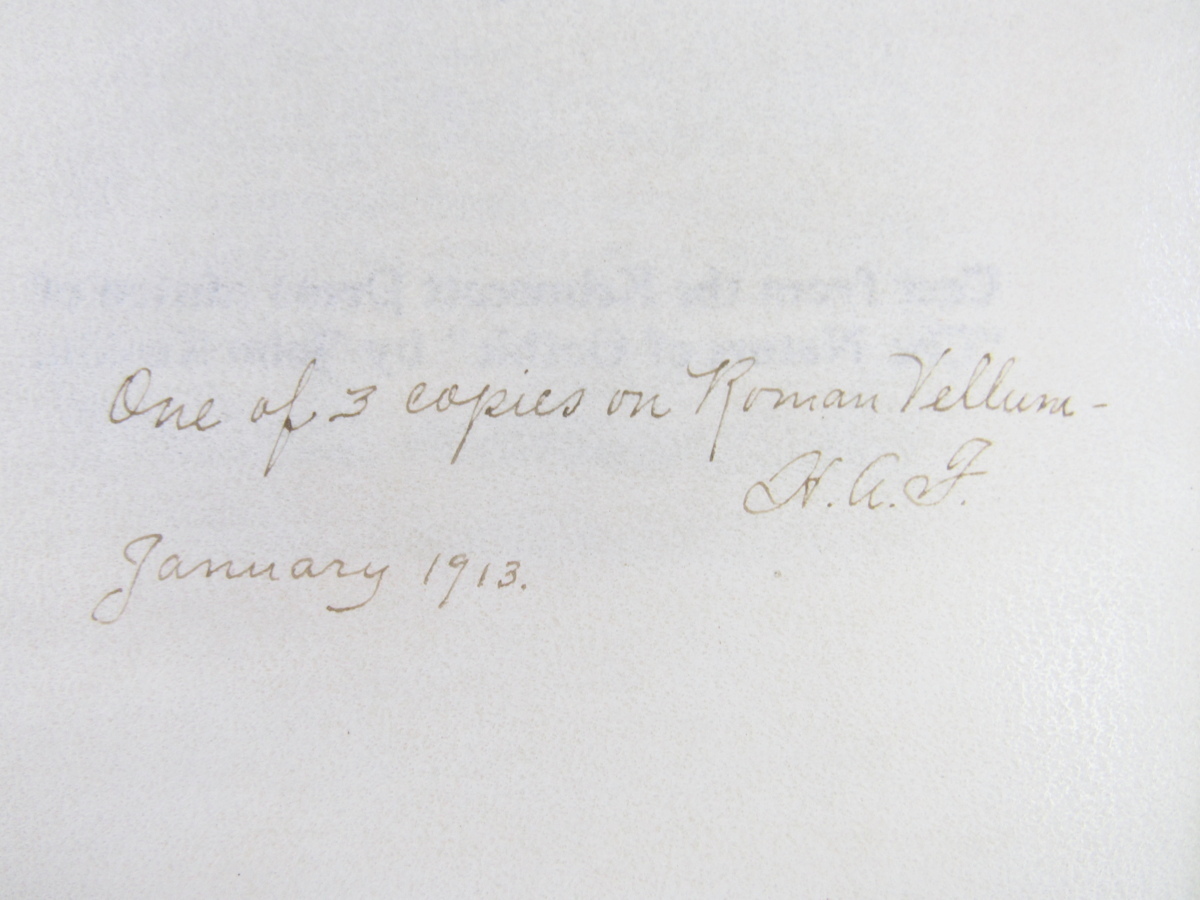 One of 3 copies on Roman Vellum -
H. A. F.
January 1913.